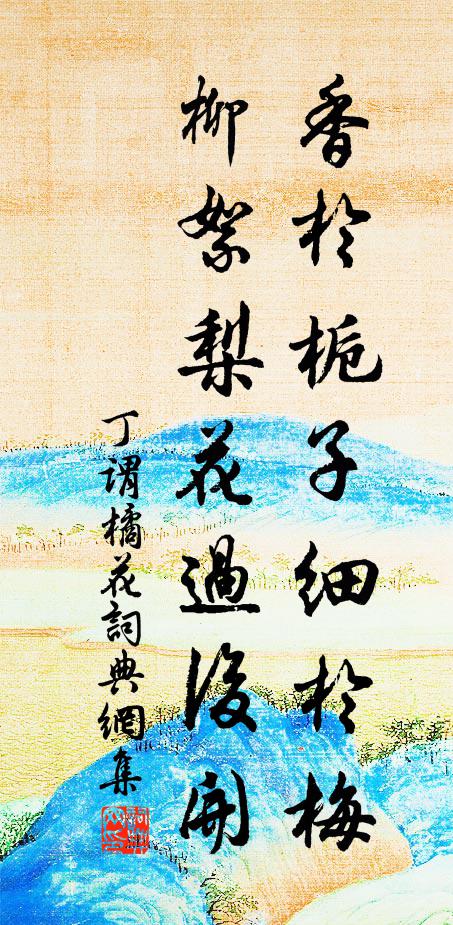 香於栀子細於梅
柳絮梨花過後開
丁謂橘花詞典網集